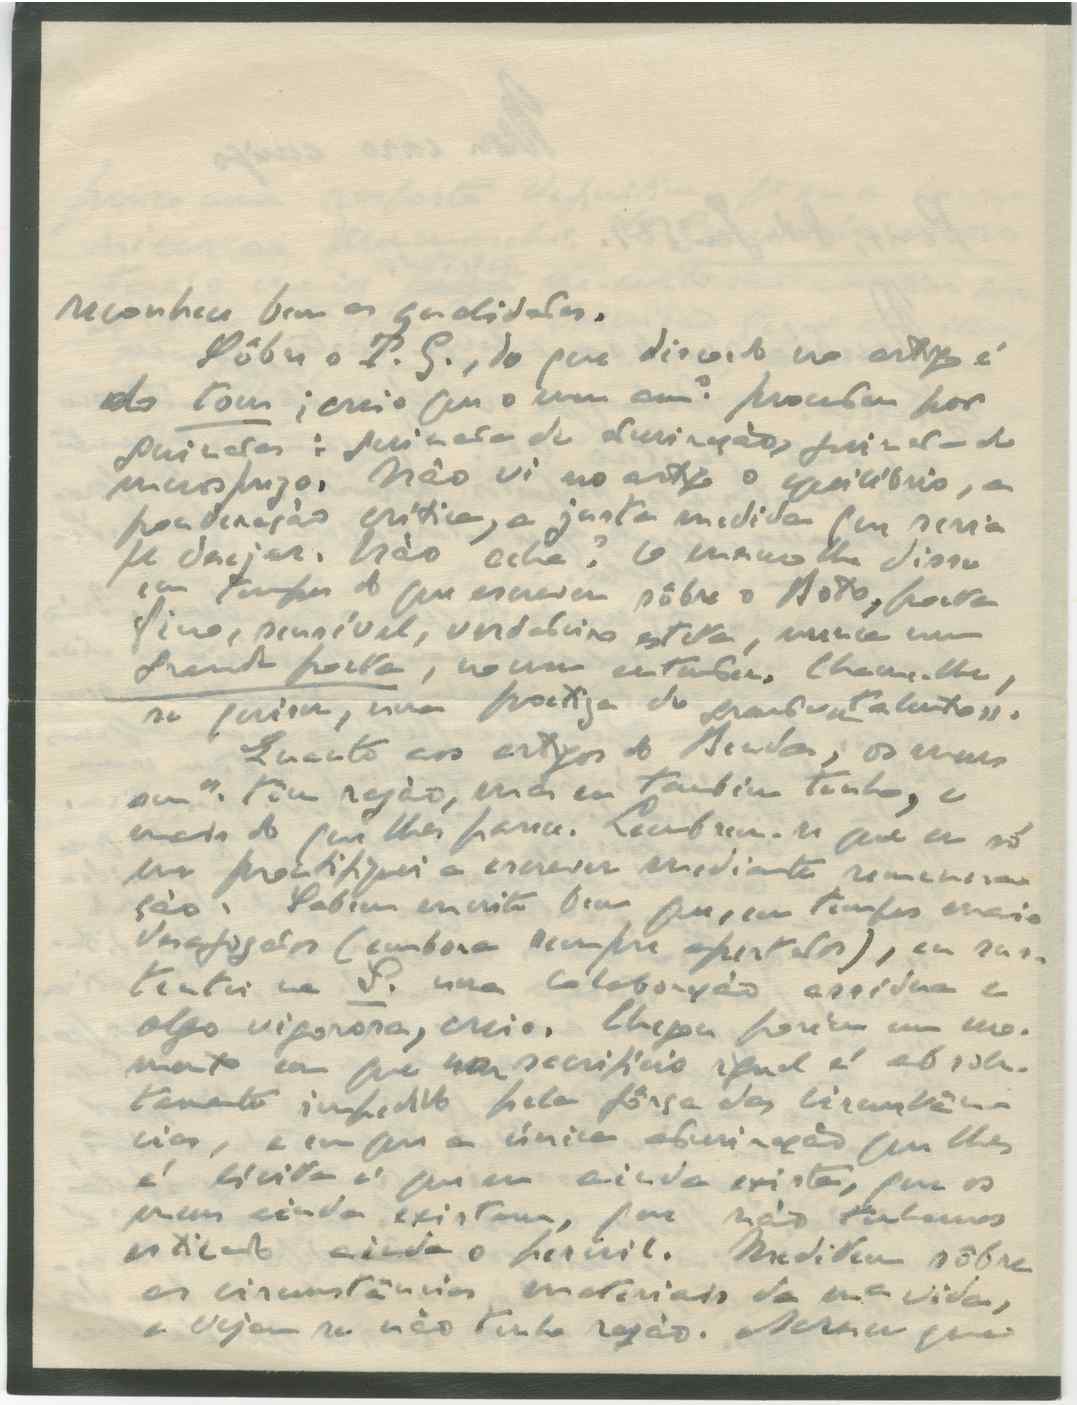 reconhece bem as qualidades.
Sôbre o P. G., do que discordo no artigo é
do tom; creio que o meu am.º procedeu por
guinadas: guinada de admiração, guinada de
menosprezo. Não vi no artigo o equilíbrio, a
ponderação crítica, a justa medida que seria
de desejar. Não acha? O mesmo lhe disse
em tempos do que escreveu sôbre o Boto, poeta
fino, sensível, verdadeiro esteta, nunca um
grande poeta, no meu entender. Chame-lhe,
se quiser, um poetiza de
Quanto aos artigos do Benda, os meus
am.ºs têm razão, mas eu também tenho, e
mais do que lhes parece. Lembrem-se que eu só
me prontifiquei a escrever mediante remunera
ção. Sabem muito bem que, em tempos mais
desafogados (embora sempre apertados), eu sus-
tentei na S. uma colaboração assídua e
algo vigorosa, creio. Chegou porém um mo-
mento em que um sacrifício igual é absolu-
tamente impedido pela fôrça das circunstân
cias, e em que a única admiração que lhes
é lícita é que eu ainda exista, que os
meus ainda existam, que não tenhamos
esticado ainda o pernil. Meditem sôbre
as circunstâncias materiais da m.ª vida,
e vejam se não tenho razão. que